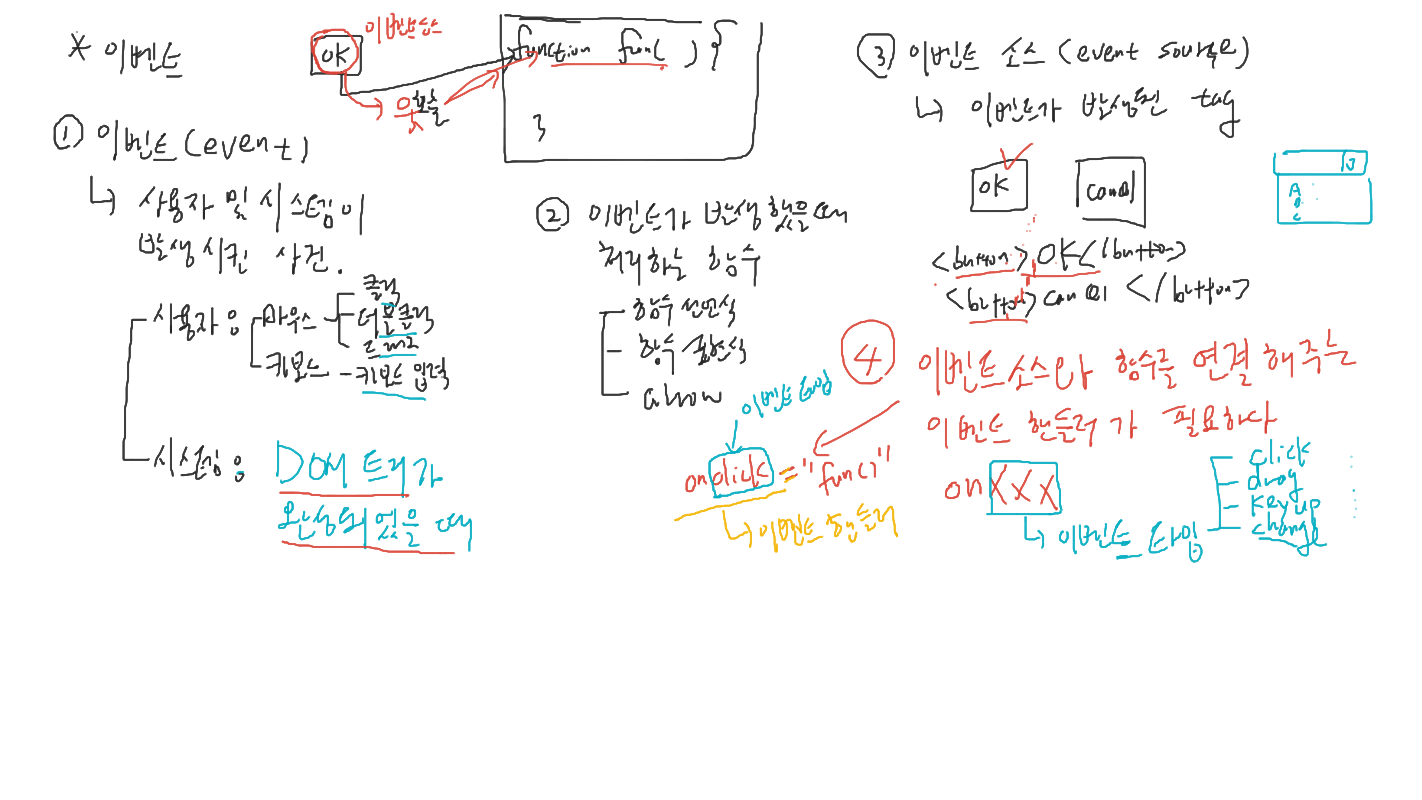 * 이벤트
OK
이벤트소스
호출
function fun( ) {
}
① 이벤트 (event)
↳ 사용자 및 시스템이
발생시킨 사건.
사용자응
마우스
클릭
더블클릭
드래그
키보드 - 키보드 입력
시스템응
DOM 트리가
완성되었을 때
② 이벤트가 발생했을때
처리하는 함수
함수 선언식
함수 표현식
arrow
③ 이벤트 소스 (event source)
↳ 이벤트가 발생된 tag
OK
cancel
A
B
C
<button> OK </button>
<button> cancel </button>
④ 이벤트소스와 함수를 연결해주는
이벤트 핸들러가 필요하다
이벤트 타입
onclick = "fun()"
↳ 이벤트 핸들러
onXXX
↳ 이벤트 타입
click
drag
keyup
change